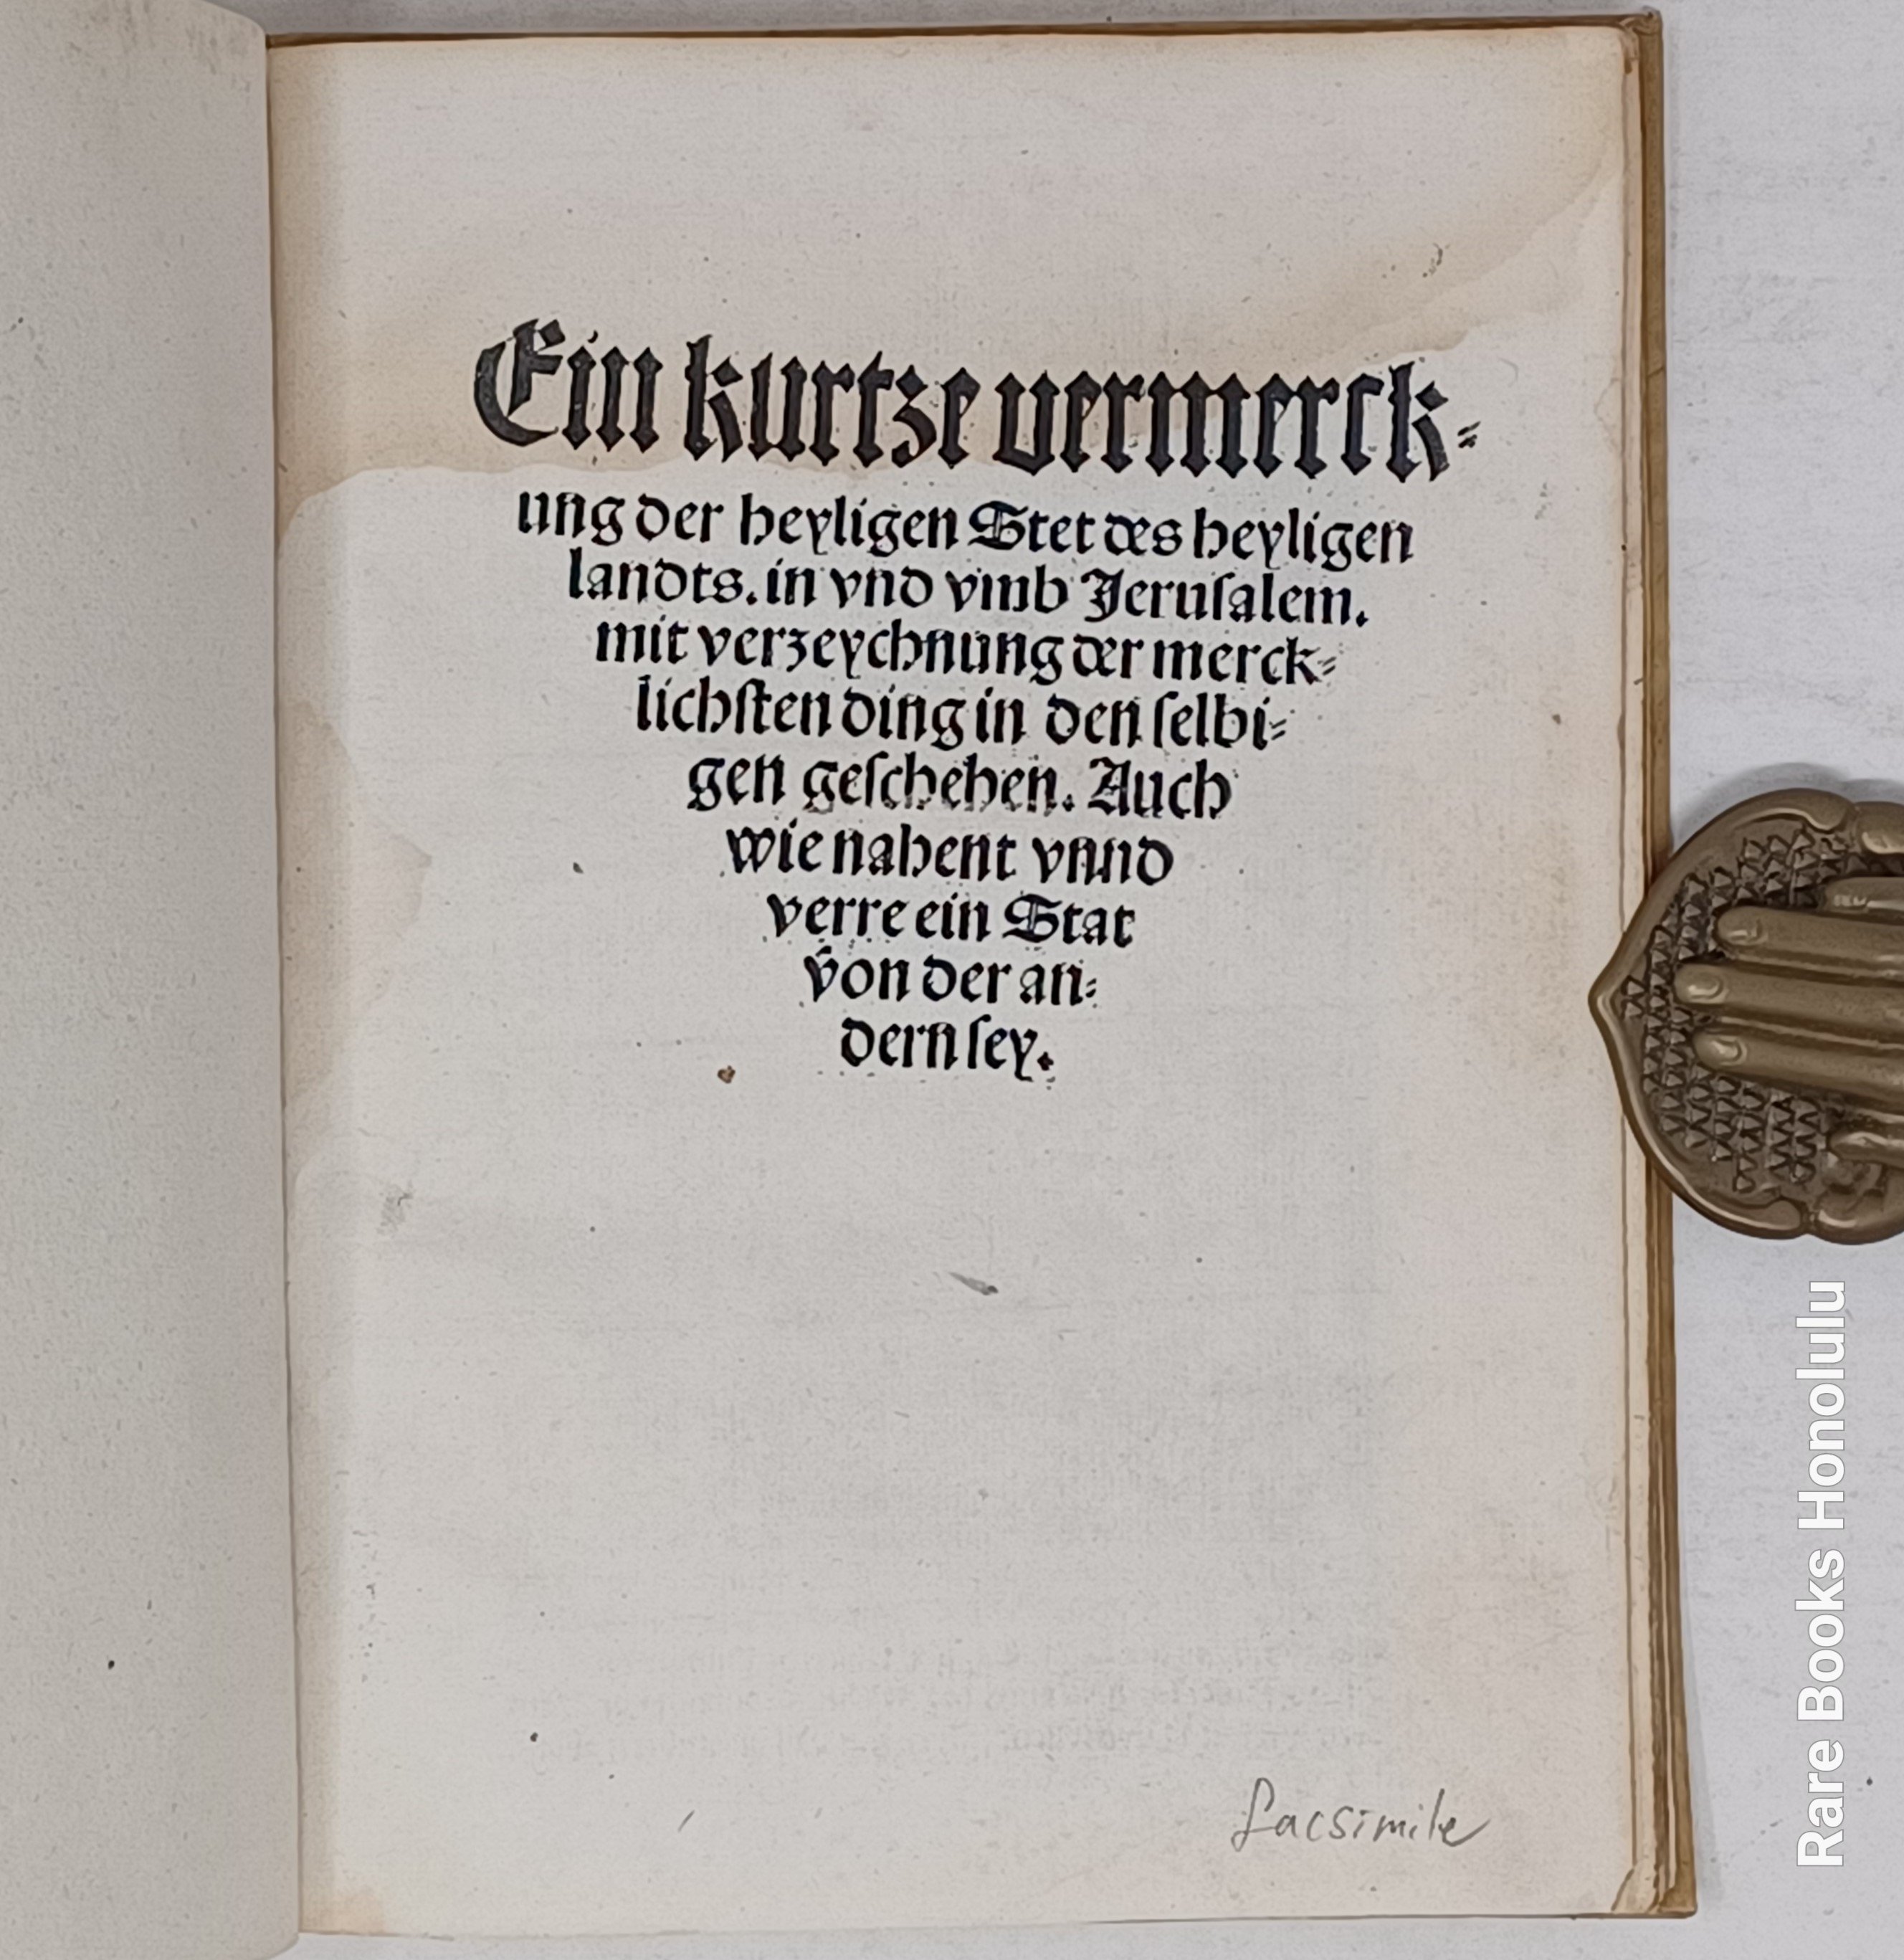 Ein kurtze vermerck⸗
ung der heyligen Stet des heyligen
landts. in vnd vmb Jeruſalem.
mit verzeychnung der merck⸗
lichſten ding in den ſelbi⸗
gen geſchehen. Auch
wie nahent vnnd
verre ein Stat
von der an⸗
dern ſey.
facsimile
Rare Books Honolulu